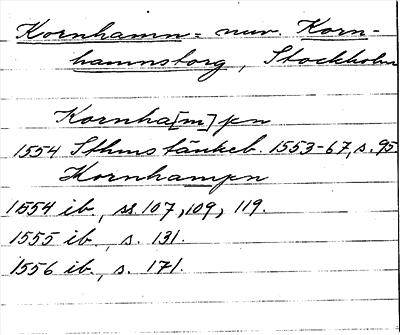 Kornhamn = nuv. Korn-
hamnstorg, Stockholm
Kornha[m]pn
1554 Sthms tänkeb. 1553-67, s. 95
Kornhampn
1554 ib., ss. 107, 109, 119.
1555 ib., s. 131.
1556 ib., s. 171.